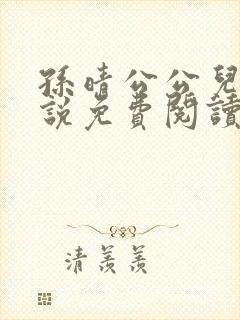 孫晴公公兒
說免費閱讀
清羨羨